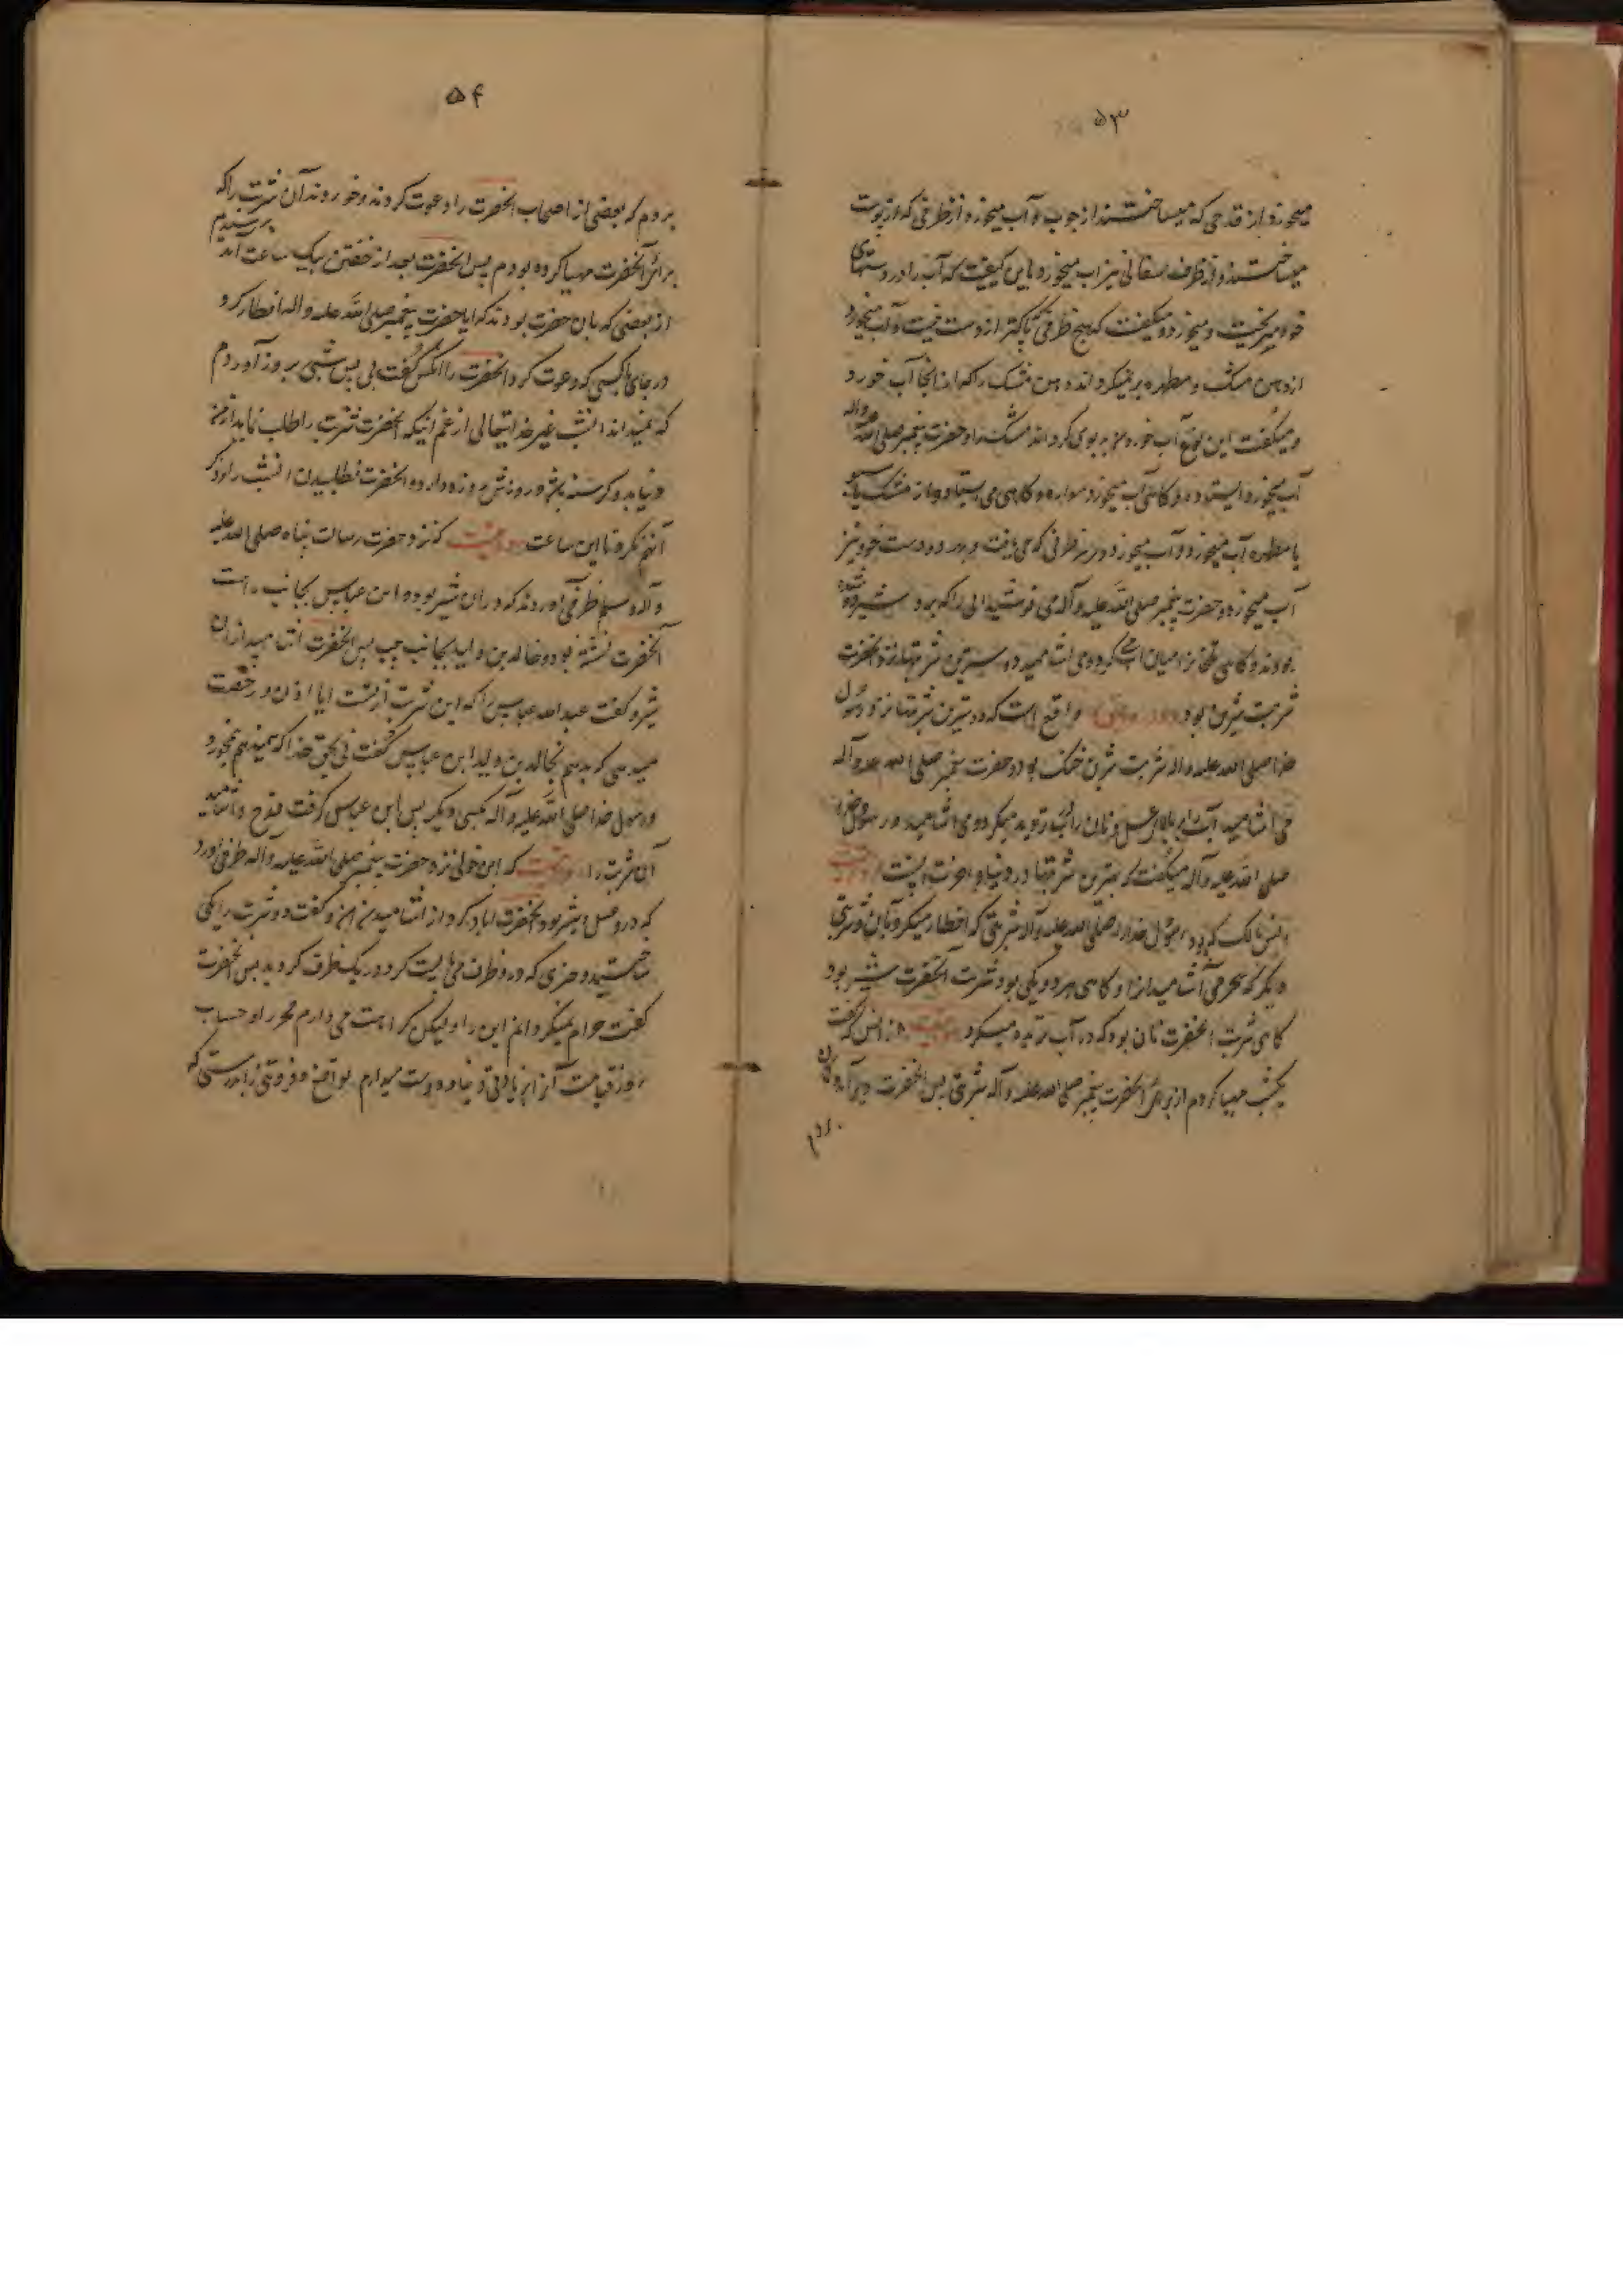 ۵۳
میخورد از قدحی که میساختند از چوب و آب میخورد از ظرفی که از پوست
میساختند و از ظرف سفالی نیز آب میخورد باین کیفیت که آب را در دستهای
خود میریخت و میخورد و میگفت که هیچ ظرفی پاکتر از دست نیست و آب میخورد
از دهن مشک و مطهره برمیگرداند دهن مشک را که از انجا آب خورد
و میگفت این نوع آب خوردن بدبوی گرداند مشک را و حضرت پیغمبر صلی الله علیه واله
آب میخورد ایستاده و گاهی آب میخورد سواره و گاهی می ایستاد و از مشک یا سبو
یا مطهره آب میخورد و آب میخورد در هر ظرفی که می یافت و در دو دست خود نیز
آب میخورد و حضرت پیغمبر صلی الله علیه و آله می نوشید ابی را که بر او شیر
بودند و گاهی میان آب کرده می اشامید و بهترین شربتها نزد آنحضرت
شربت شیرین بود و در روایتی واقع است که دوسترین شربتها نزد رسول
خدا صلی الله علیه واله شربت شیرین خنک بود و حضرت پیغمبر صلی الله علیه وآله
می اشامید آب را بر بالای عسل و نان را در آب ترید میکرد و می اشامید و رسول خدا
صلی الله علیه وآله میگفت که بهترین شربتها در دنیا و اخرت آبست روایت
انس مالک که بود رسول خدا را صلی الله علیه وآله شربتی که افطار میکرد بآن و شربتی
دیگر که بسحر می آشامید انرا و گاهی هر دو یکی بود شربت آنحضرت شیر بود
گاهی شربت آنحضرت نان بود که در آب ترید میکرد روایت از انس که گفت
یکشب مهیا کردم از برای آنحضرت پیغمبر صلی الله علیه وآله شربتی پس آنحضرت دیر آمد
بردم
۵۴
بردم که بعضی از اصحاب آنحضرت را دعوت کردند و خوردند آن شربت را که
برای آنحضرت مهیا کرده بودم پس آنحضرت بعد از خفتن بیک ساعت آمد پرسیدم
از بعضی که بان حضرت بودند که ایا حضرت پیغمبر صلی الله علیه واله افطار کرد
در جای یا کسی که دعوت کرد آنحضرت را انکس گفت نی پس شبی بروز آوردم
که نمیداند انشب غیر خدایتعالی از غم اینکه آنحضرت شربت را طلب نماید از من
و نیابد و گرسنه باشد و روزش روزه دارد و آنحضرت نطلبیدن انشب را و ذکر
آنهم نکرد تا این ساعت روایت که نزد حضرت رسالت پناه صلی الله علیه
وآله وسلم ظرفی آوردند که دران شیر بود و ابن عباس بجانب راست
آنحضرت نشسته بود و خالد بن ولید بجانب چپ پس آنحضرت اشامید ازان
شیر و گفت عبدالله عباس را که این شربت از تست ایا اذن و رخصت
میدهی که بدهم بخالد بن ولید ابن عباس گفت نی بحق خدا که نمیدهم بخورد
رسول خدا صلی الله علیه وآله بکسی دیگر پس ابن عباس گرفت قدح و اشامید
آن شربت را روایت که ابن خولی نزد حضرت پیغمبر صلی الله علیه وآله ظرفی آورد
که درو عسل و شیر بود آنحضرت ابا کرد از اشامیدن آن و گفت دو شربت را یکی
ساختید و چیزی که در دو ظرف می بایست کرد در یک ظرف کردید پس آنحضرت
گفت حرام نمیگردانم این را ولیکن کراهت می دارم فخر را و حساب
روز قیامت از این زیادتی دنیا و دوست میدارم تواضع و فروتنی را بدرستی که